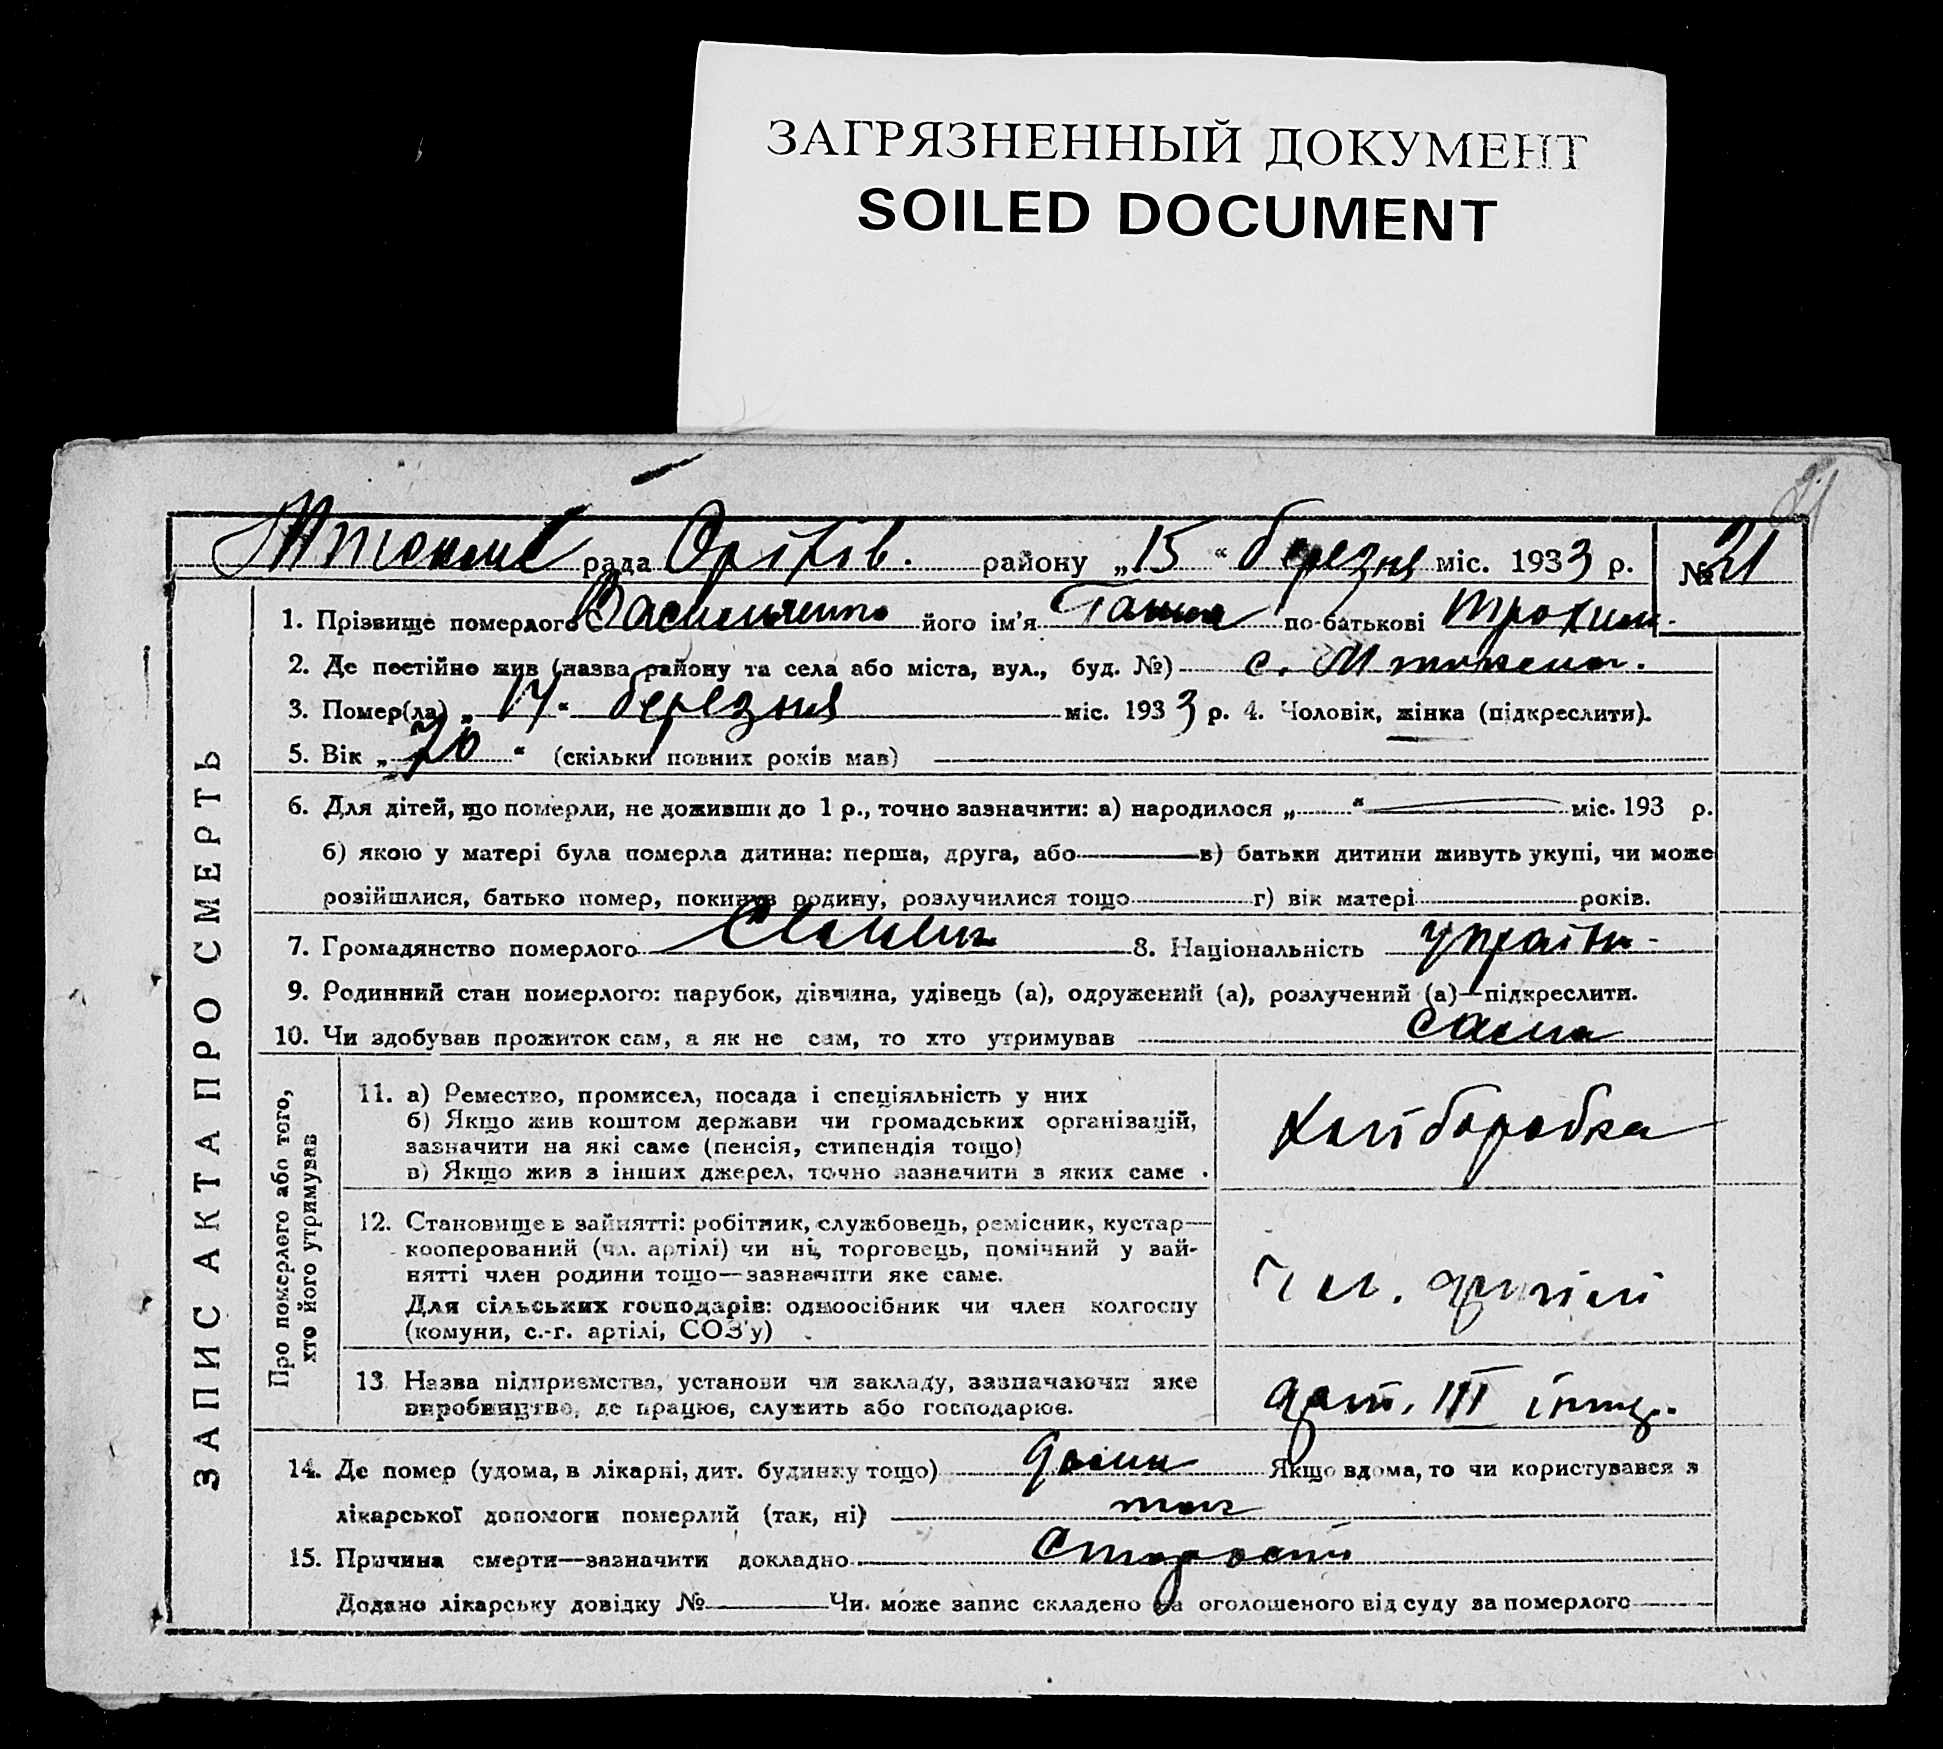 ЗАГРЯЗНЕННЫЙ ДОКУМЕНТ
SOILED DOCUMENT
21
рада Оріхів. району „15“ березня міс. 1933 р. № 21
ЗАПИС АКТА ПРО СМЕРТЬ
1. Прізвище померлого Василенко його ім'я Ганна по-батькові Трохим.
2. Де постійно жив (назва району та села або міста, вул., буд. №) с.
3. Помер(ла) „17“ березня міс. 1933 р. 4. Чоловік, жінка (підкреслити).
5. Вік „70“ (скільки повних років мав)
6. Для дітей, що померли, не доживши до 1 р., точно зазначити: а) народилося „ “ міс. 193 р.
б) якою у матері була померла дитина: перша, друга, або в) батьки дитини живуть укупі, чи може
розійшлися, батько помер, покинув родину, розлучилися тощо г) вік матері років.
7. Громадянство померлого 8. Національність україн-
9. Родинний стан померлого: парубок, дівчина, удівець (а), одружений (а), розлучений (а)—підкреслити.
10. Чи здобував прожиток сам, а як не сам, то хто утримував сама
Про померлого або того,
хто його утримував
11. а) Ремество, промисел, посада і спеціяльність у них
б) Якщо жив коштом держави чи громадських організацій,
зазначити на які саме (пенсія, стипендія тощо)
в) Якщо жив з інших джерел, точно зазначити з яких саме .
хліборобка
12. Становище в зайнятті: робітник, службовець, ремісник, кустар—
кооперований (чл. артілі) чи ні, торговець, помічний у зай-
нятті член родини тощо—зазначити яке саме.
Для сільських господарів: одноосібник чи член колгоспу
(комуни, с.-г. артілі, СОЗ'у)
чл. артілі
13. Назва підприємства, установи чи закладу, зазначаючи яке
виробництво, де працює, служить або господарює.
арт. III інтер.
14. Де помер (удома, в лікарні, дит. будинку тощо) дома Якщо вдома, то чи користувався з
лікарської допомоги померлий (так, ні) так
15. Причина смерти—зазначити докладно старость
Додано лікарську довідку № Чи може запис складено на оголошеного від суду за померлого